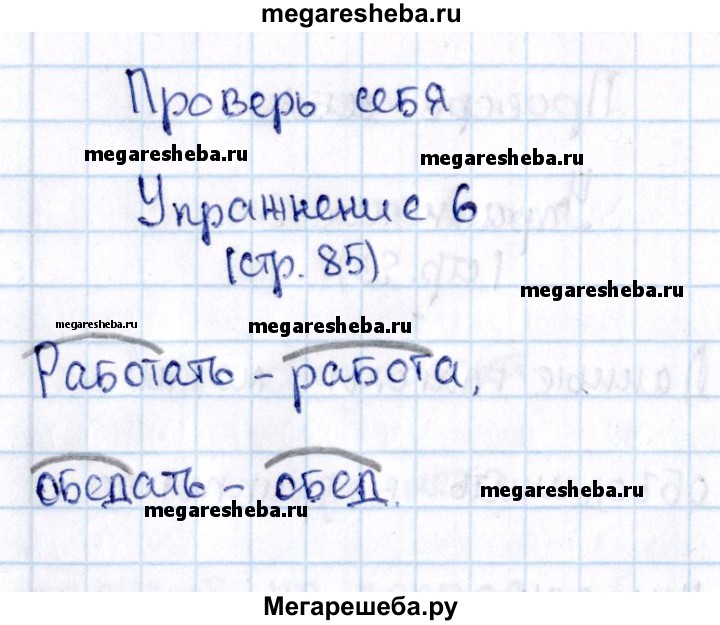 megaresheba.ru
Проверь себя
megaresheba.ru
megaresheba.ru
Упражнение 6
(стр. 85)
megaresheba.ru
megaresheba.ru
megaresheba.ru
Работать – работа,
обедать – обед.
megaresheba.ru
megaresheba.ru
Мегарешеба.ру